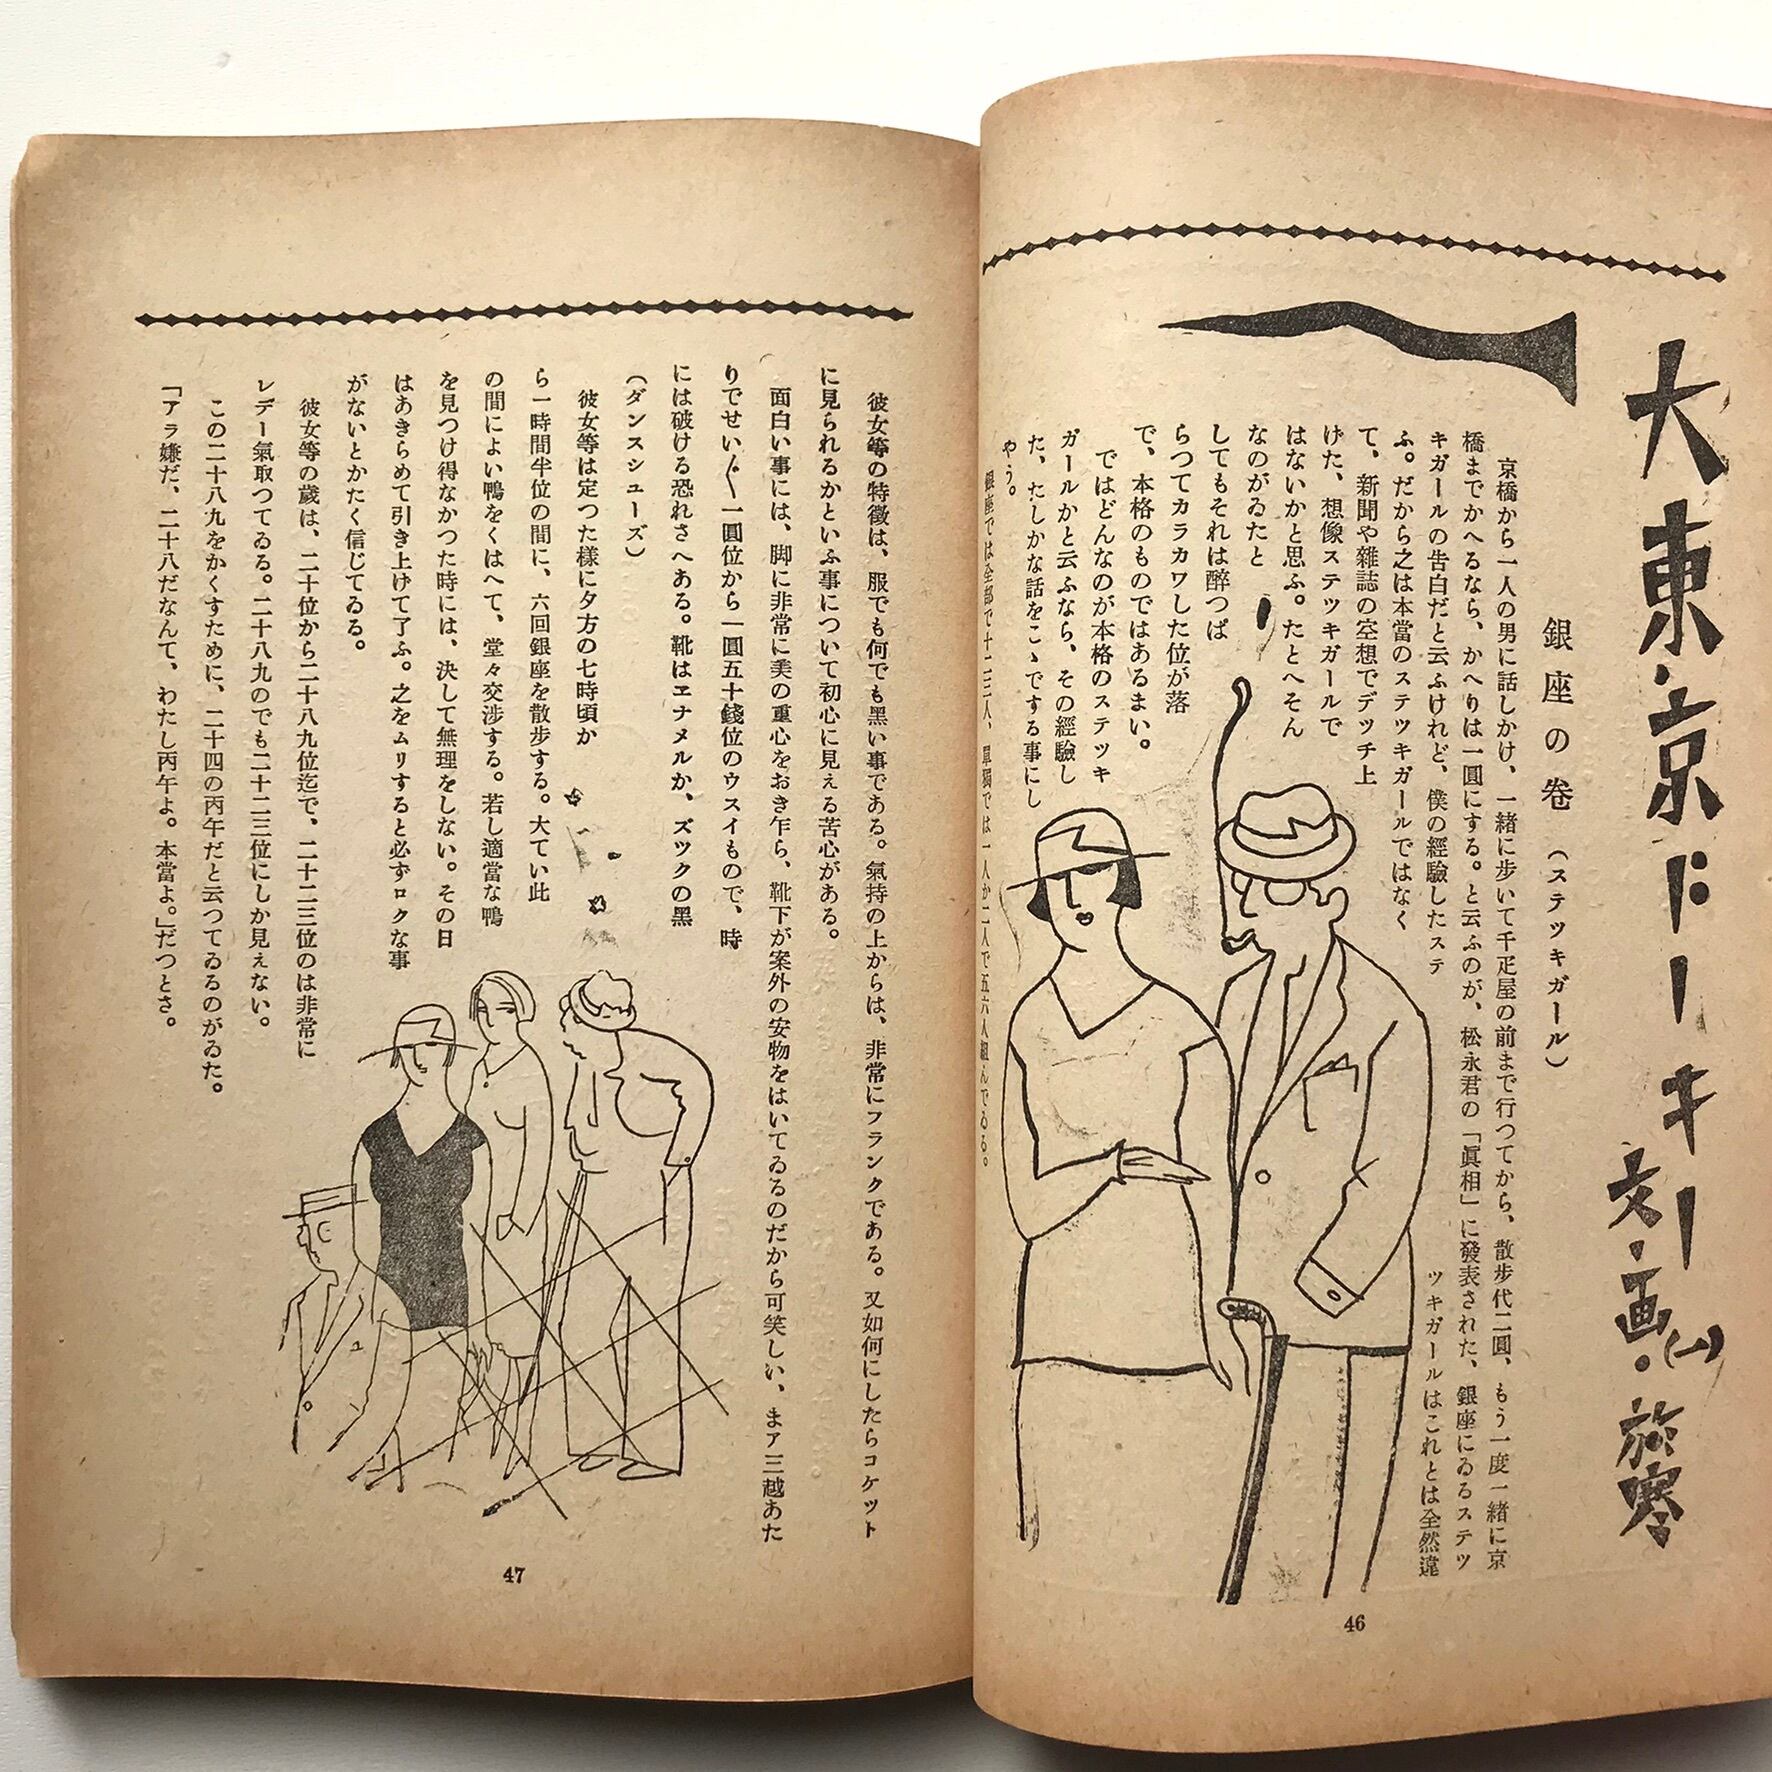 大東京トーキー(一)
文・画・
銀座の卷 (ステツキガール)
京橋から一人の男に話しかけ、一緒に步いて千疋屋の前まで行つてから、散步代二圓、もう一度一緒に京
橋までかへるなら、かへりは一圓にする。と云ふのが、松永君の「眞相」に發表された、銀座にゐるステツ
キガールの告白だと云ふけれど、僕の經驗したステ
ツキガールはこれとは全然違
ふ。だから之は本當のステツキガールではなく
て、新聞や雜誌の空想でデッチ上
げた、想像ステツキガールで
はないかと思ふ。たとへそん
なのがゐたと
してもそれは醉つぱ
らつてカラカワした位が落
で、本格のものではあるまい。
ではどんなのが本格のステッキ
ガールかと云ふなら、その經驗し
た、たしかな話をこゝでする事にし
やう。
銀座では全部で十二三人、單獨では一人か二人で五六人組んでゐる。
46
彼女等の特徵は、服でも何でも黑い事である。氣持の上からは、非常にフランクである。又如何にしたらコケット
に見られるかといふ事について初心に見える苦心がある。
面白い事には、脚に非常に美の重心をおき乍ら、靴下が案外の安物をはいてゐるのだから可笑しい、まア三越あた
りでせい〲一圓位から一圓五十錢位のウスイもので、時
には破ける恐れさへある。靴はエナメルか、ズックの黑
(ダンスシューズ)
彼女等は定つた樣に夕方の七時頃か
ら一時間半位の間に、六回銀座を散步する。大てい此
の間によい鴨をくはへて、堂々交涉する。若し適當な鴨
を見つけ得なかつた時には、決して無理をしない。その日
はあきらめて引き上げて了ふ。之をムリすると必ずロクな事
がないとかたく信じてゐる。
彼女等の歲は、二十位から二十八九位迄で、二十二三位のは非常に
レデー氣取つてゐる。二十八九のでも二十二三位にしか見えない。
この二十八九をかくすために、二十四の丙午だと云つてゐるのがゐた。
「アラ嫌だ、二十八だなんて、わたし丙午よ。本當よ。」だつとさ。
47